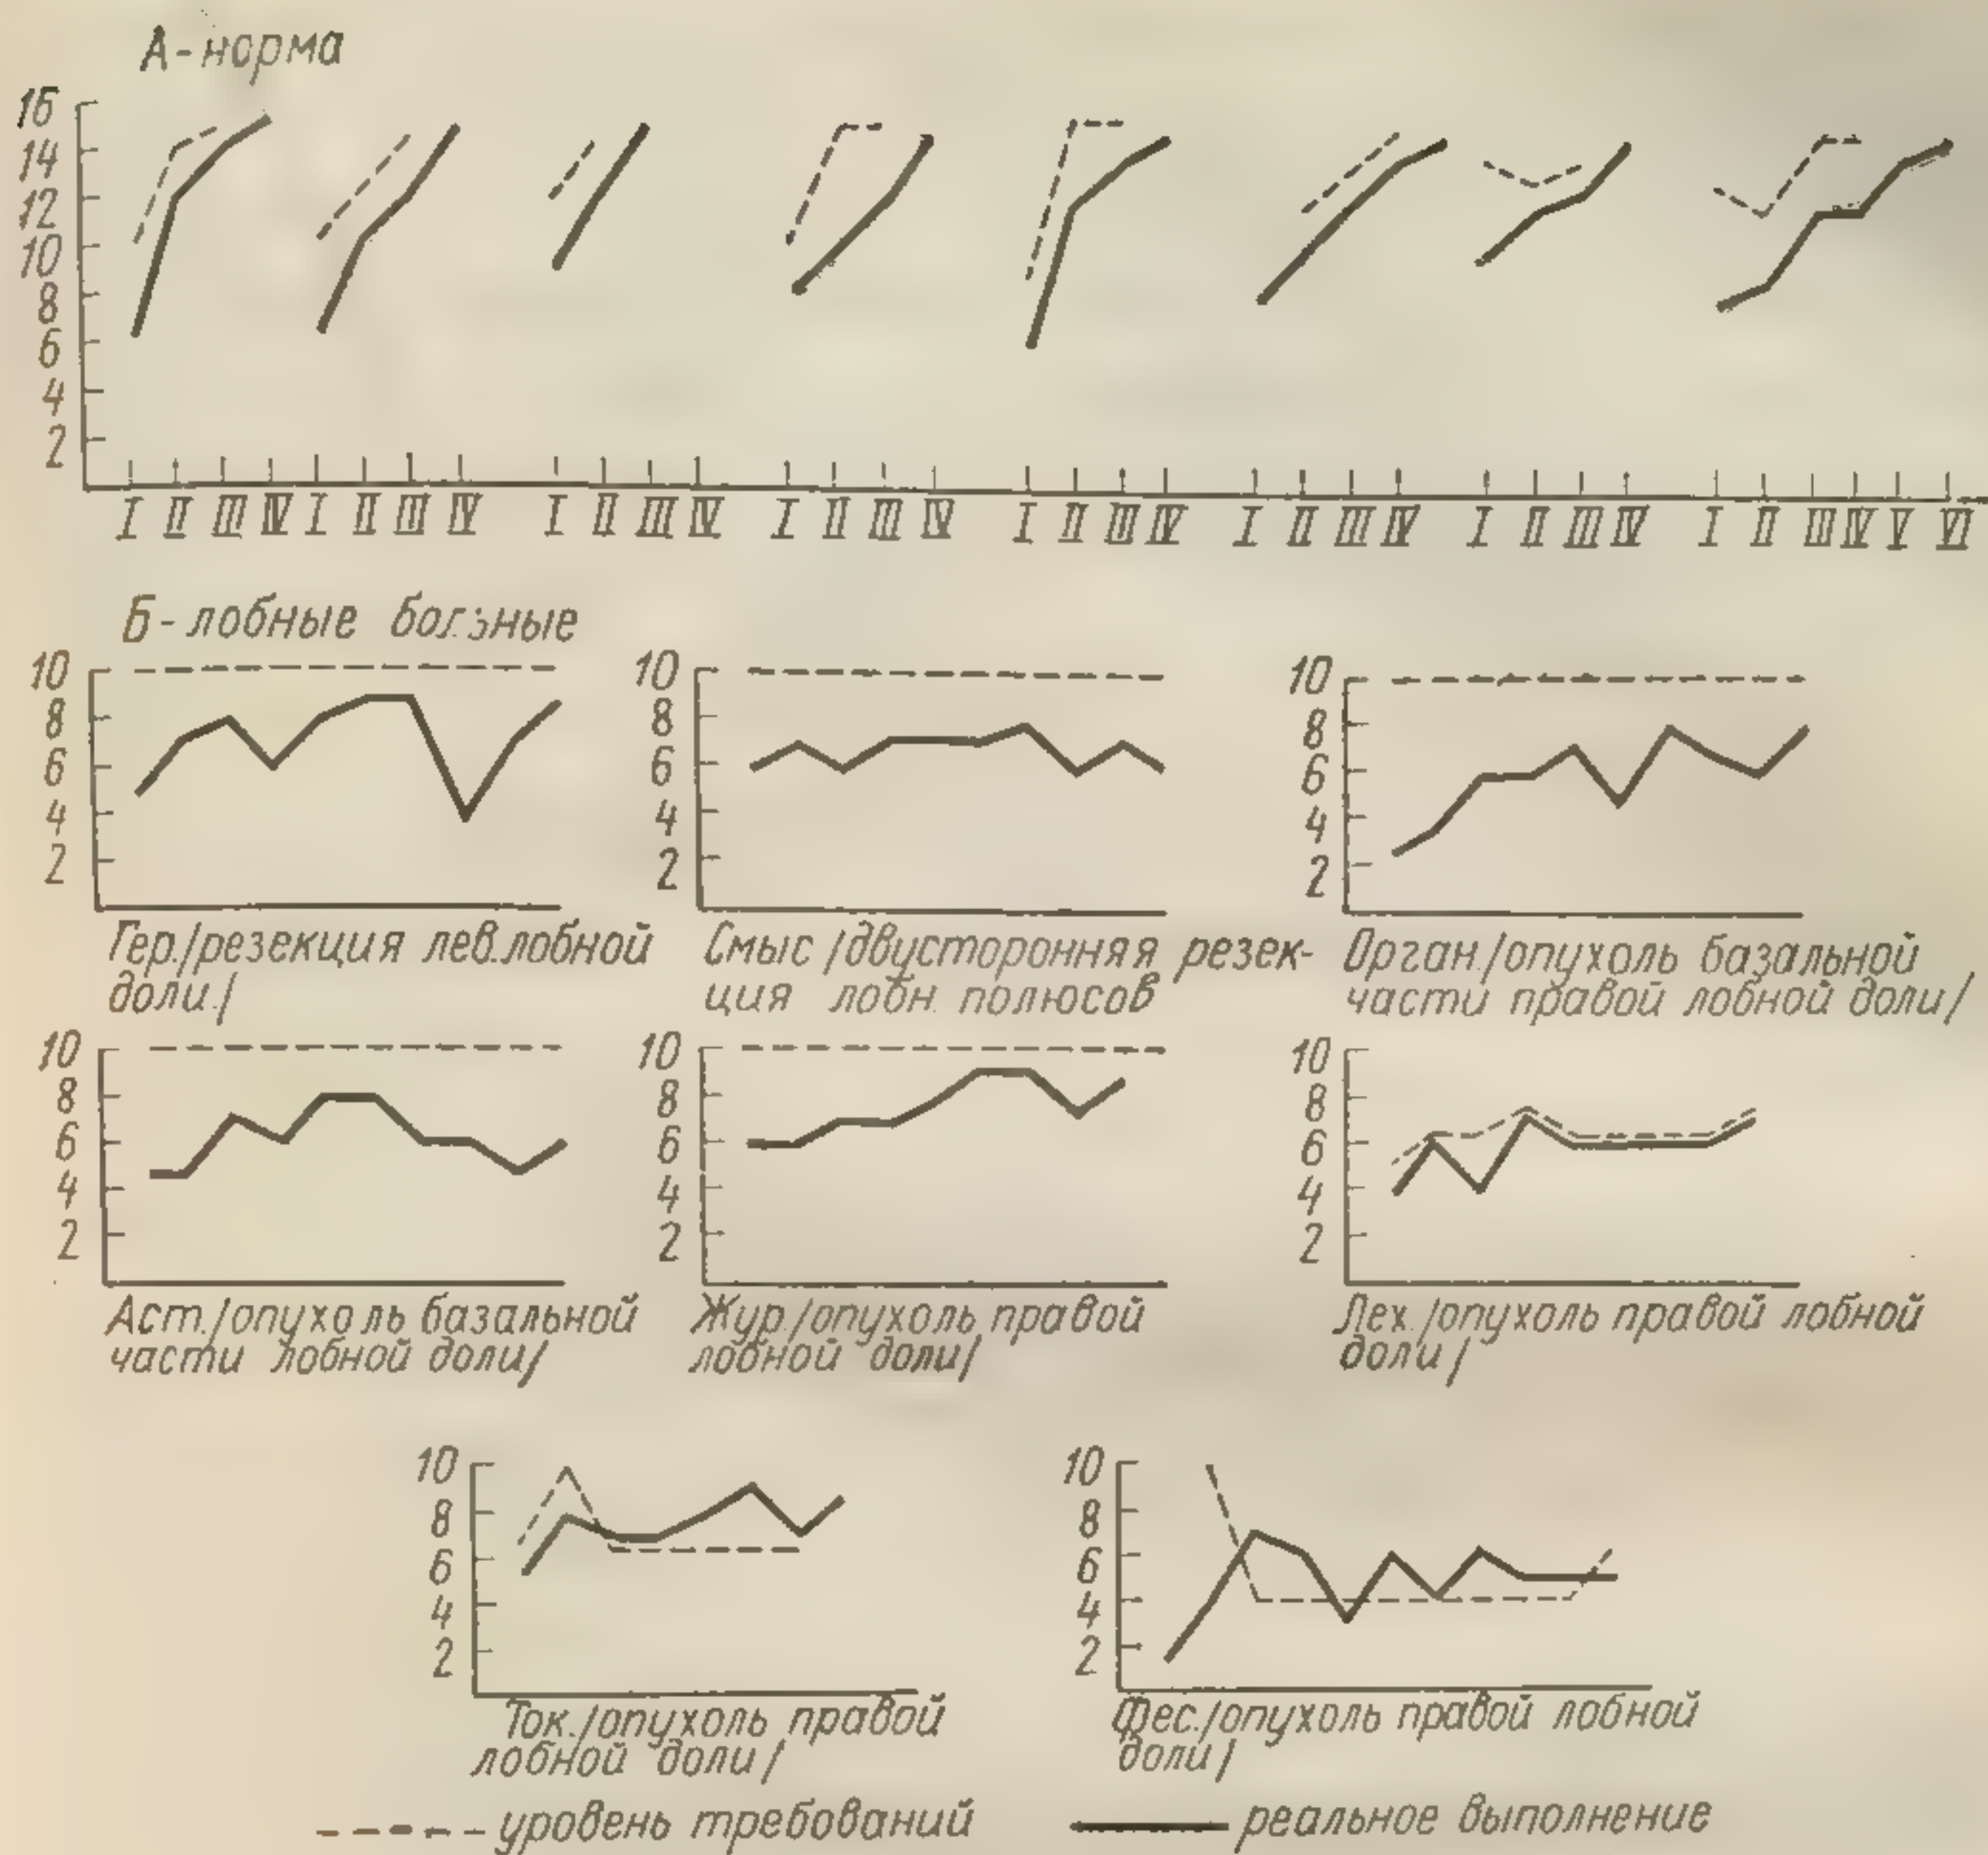 А-норма
16
14
12
10
8
6
4
2
I II III IV I II III IV I II III IV I II III IV I II III IV I II III IV I II III IV I II III IV V VI
Б-лобные больные
10 10 10
8 8 8
6 6 6
4 4 4
2 2 2
Гер./резекция лев.лобной
доли./
Смыс /двусторонняя резек-
ция лобн. полюсов
Орган./опухоль базальной
части правой лобной доли/
10 10 10
8 8 8
6 6 6
4 4 4
2 2 2
Аст./опухоль базальной
части лобной доли/
Жур./опухоль правой
лобной доли/
Лех./опухоль правой лобной
доли/
10 10
8 8
6 6
4 4
2 2
Ток./опухоль правой
лобной доли/
Фес./опухоль правой лобной
доли/
уровень требований реальное выполнение